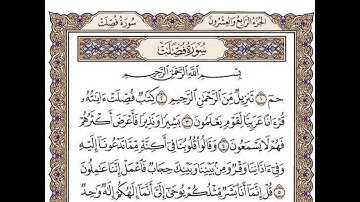 الجزء الرابع والعشرون
سورة فصلت
سُورَةُ فُصِّلَتْ
بِسْمِ اللَّهِ الرَّحْمَٰنِ الرَّحِيمِ
حمٓ ١ تَنزِيلٌ مِّنَ الرَّحْمَٰنِ الرَّحِيمِ ٢ كِتَٰبٌ فُصِّلَتْ ءَايَٰتُهُۥ
قُرْءَانًا عَرَبِيًّا لِّقَوْمٍ يَعْلَمُونَ ٣ بَشِيرًا وَنَذِيرًا فَأَعْرَضَ أَكْثَرُهُمْ
فَهُمْ لَا يَسْمَعُونَ ٤ وَقَالُوا۟ قُلُوبُنَا فِىٓ أَكِنَّةٍ مِّمَّا تَدْعُونَآ إِلَيْهِ
وَفِىٓ ءَاذَانِنَا وَقْرٌ وَمِنۢ بَيْنِنَا وَبَيْنِكَ حِجَابٌ فَٱعْمَلْ إِنَّنَا عَٰمِلُونَ
٥ قُلْ إِنَّمَآ أَنَا۠ بَشَرٌ مِّثْلُكُمْ يُوحَىٰٓ إِلَىَّ أَنَّمَآ إِلَٰهُكُمْ إِلَٰهٌ وَٰحِدٌ